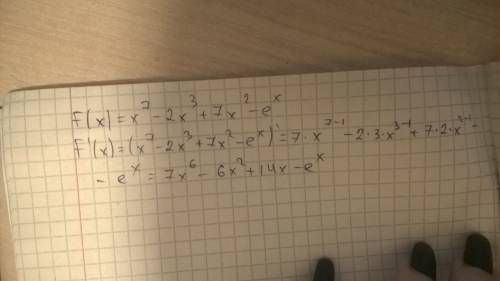 F(x) = x⁷ - 2x³ + 7x² - eˣ
F'(x) = (x⁷ - 2x³ + 7x² - eˣ)' = 7·x⁷⁻¹ - 2·3·x³⁻¹ + 7·2·x²⁻¹ -
- eˣ = 7x⁶ - 6x² + 14x - eˣ